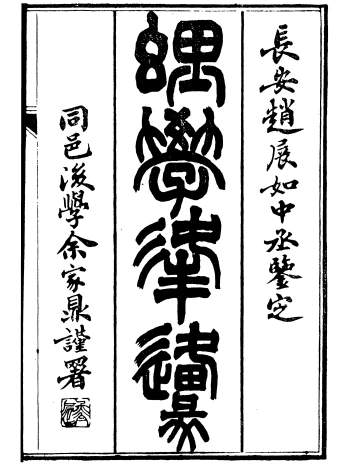 長安趙展如中丞鑒定
學
同邑後學余家鼎謹署